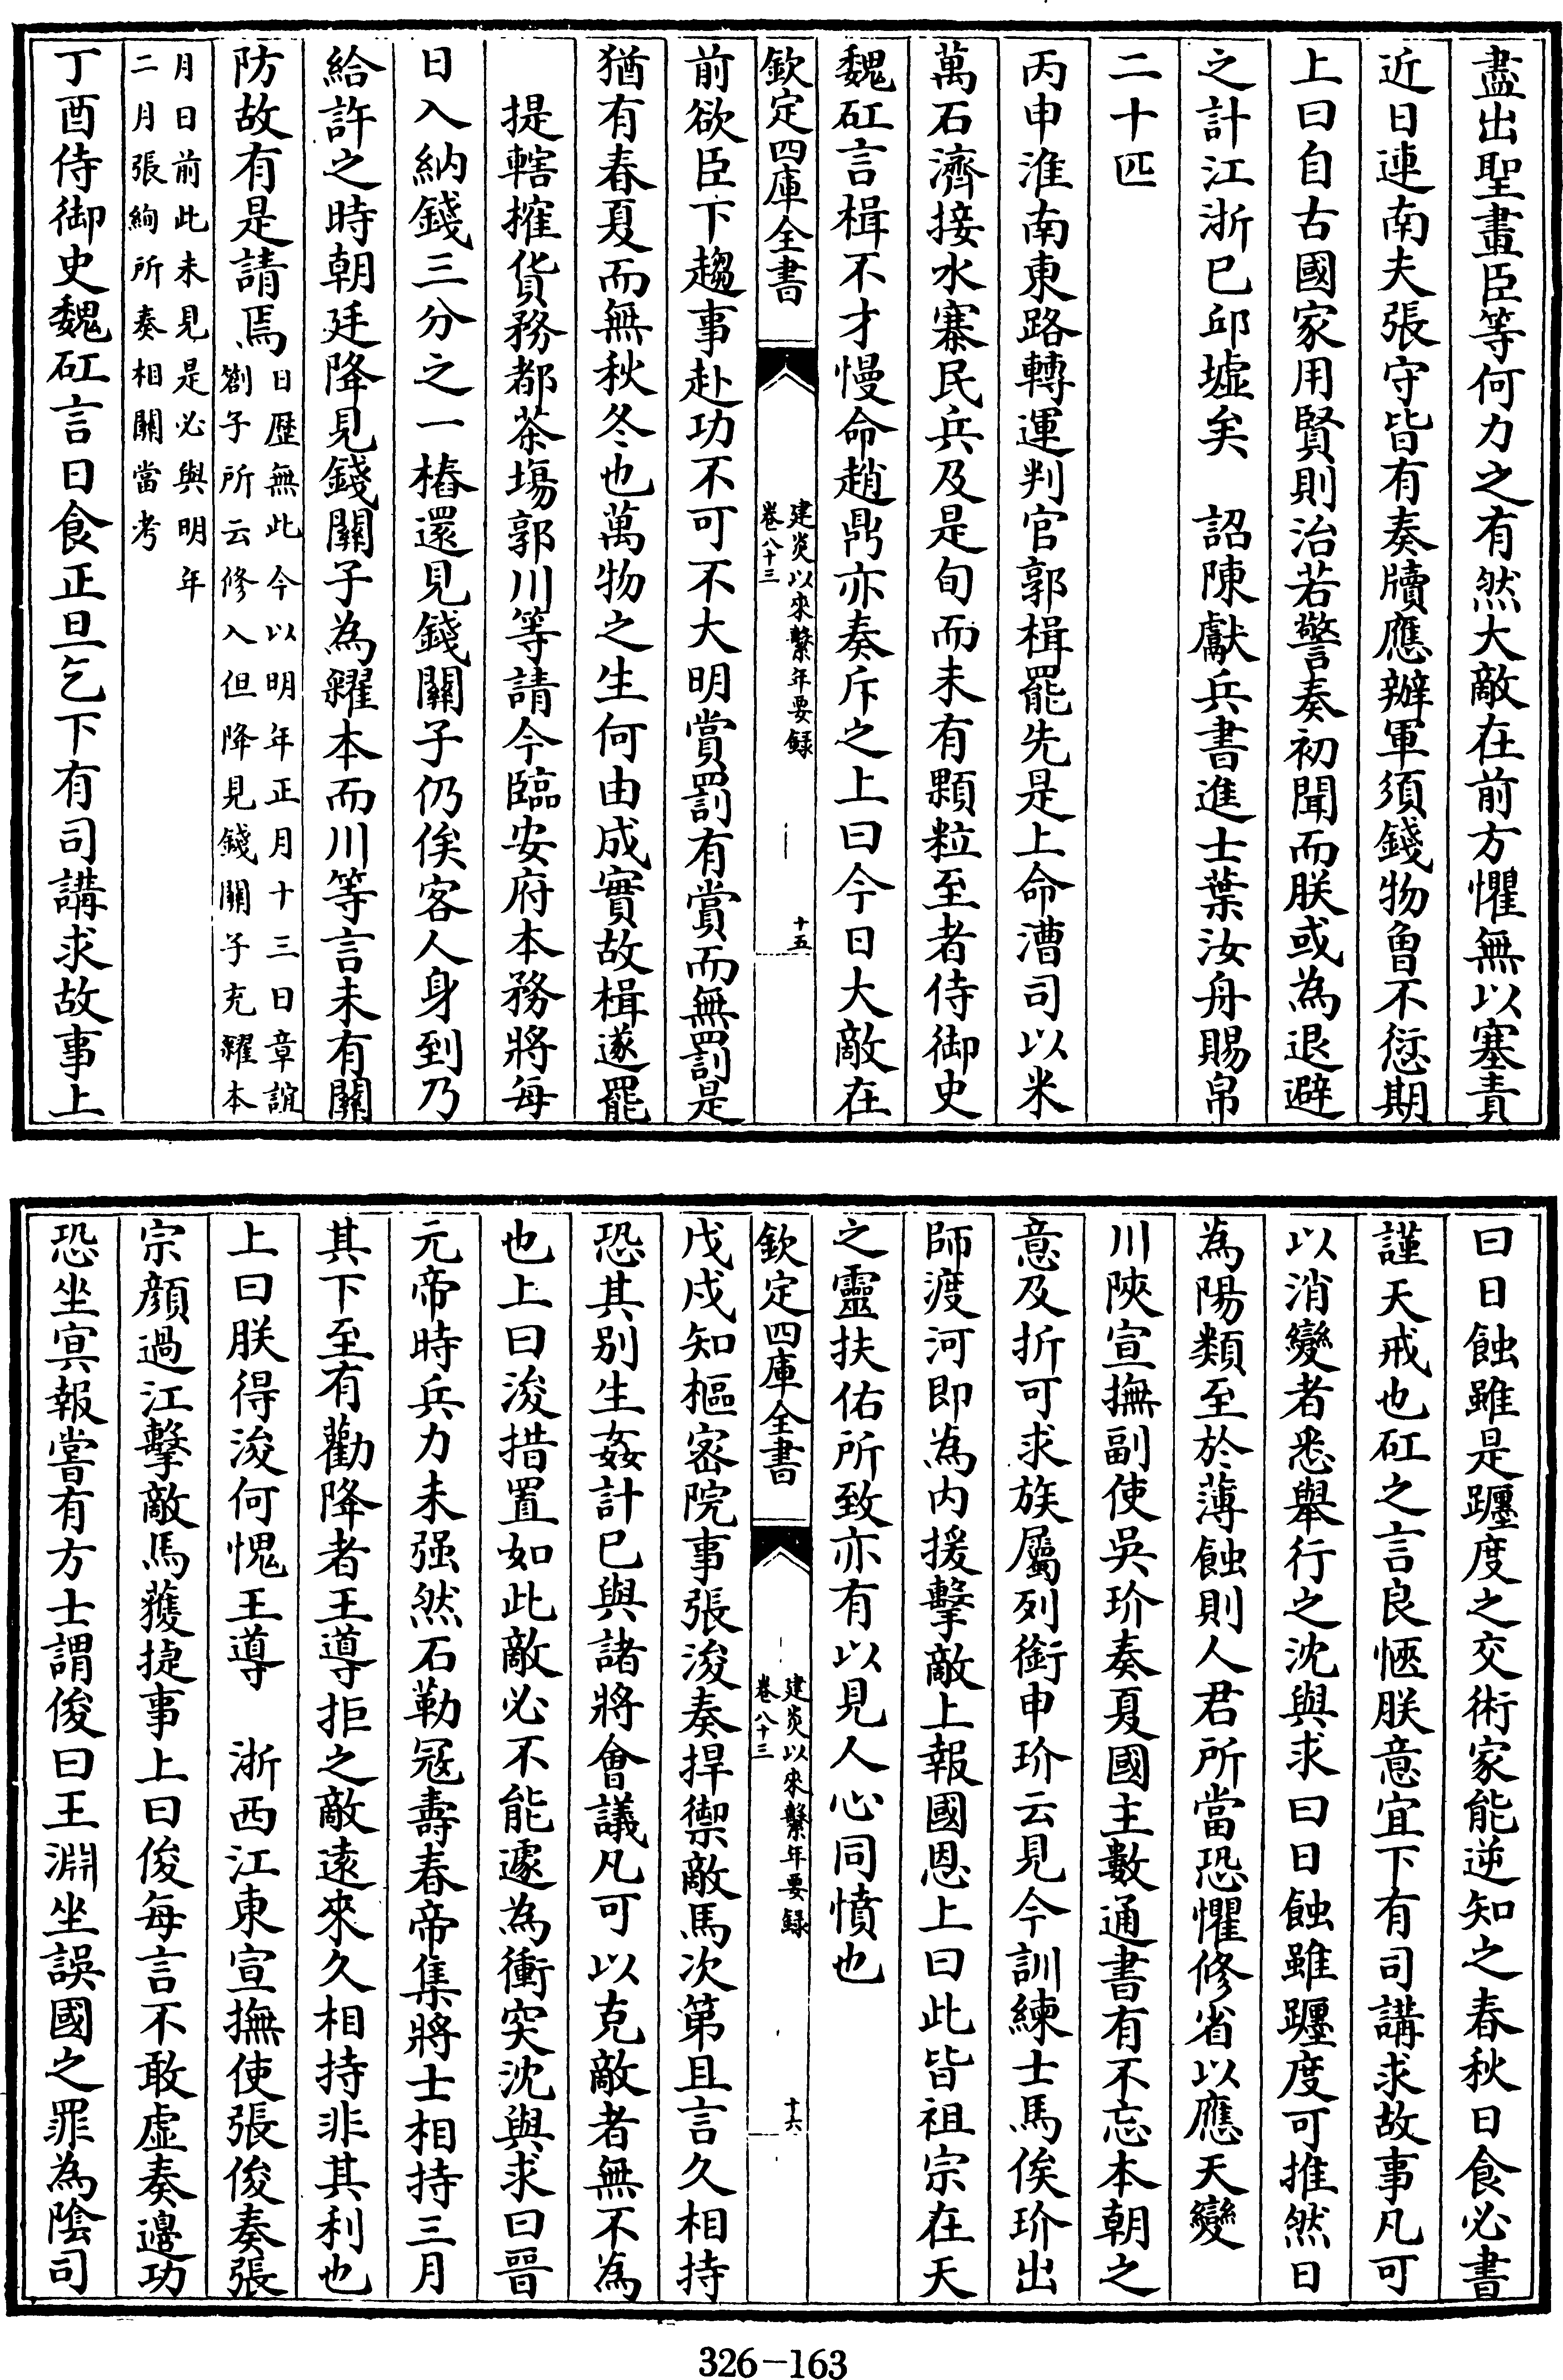 盡出聖畫臣等何力之有然大敵在前方懼無以塞責
近日連南夫張守皆有奏牘應辦軍須錢物魯不愆期
上曰自古國家用賢則治若警奏初聞而朕或為退避
之計江浙已邱墟矣　詔陳獻兵書進士葉汝舟賜帛
二十匹
丙申淮南東路轉運判官郭楫罷先是上命漕司以米
萬石濟接水寨民兵及是旬而未有顆粒至者侍御史
魏矼言楫不才慢命趙鼎亦奏斥之上曰今日大敵在
欽定四庫全書
建炎以來繫年要録
卷八十三
十五
前欲臣下趨事赴功不可不大明賞罰有賞而無罰是
猶有春夏而無秋冬也萬物之生何由成實故楫遂罷
提轄榷貨務都茶場郭川等請今臨安府本務將每
日入納錢三分之一樁還見錢關子仍俟客人身到乃
給許之時朝廷降見錢關子為糴本而川等言未有關
防故有是請焉
日歷無此今以明年正月十三日章誼
劄子所云修入但降見錢關子充糴本
月日前此未見是必與明年
二月張絢所奏相關當考
丁酉侍御史魏矼言日食正旦乞下有司講求故事上
曰日蝕雖是躔度之交術家能逆知之春秋日食必書
謹天戒也矼之言良愜朕意宜下有司講求故事凡可
以消變者悉舉行之沈與求曰日蝕雖躔度可推然日
為陽類至於薄蝕則人君所當恐懼修省以應天變
川陝宣撫副使吳玠奏夏國主數通書有不忘本朝之
意及折可求族屬列銜申玠云見今訓練士馬俟玠出
師渡河即為内援擊敵上報國恩上曰此皆祖宗在天
之靈扶佑所致亦有以見人心同憤也
欽定四庫全書
建炎以來繫年要録
卷八十三
十六
戊戌知樞密院事張浚奏捍禦敵馬次第且言久相持
恐其别生姦計已與諸將會議凡可以克敵者無不為
也上曰浚措置如此敵必不能遽為衝突沈與求曰晉
元帝時兵力未强然石勒冦壽春帝集將士相持三月
其下至有勸降者王導拒之敵遠來久相持非其利也
上曰朕得浚何愧王導　浙西江東宣撫使張俊奏張
宗顔過江擊敵馬獲捷事上曰俊每言不敢虛奏邊功
恐坐㝠報嘗有方士謂俊曰王淵坐誤國之罪為陰司
326-163